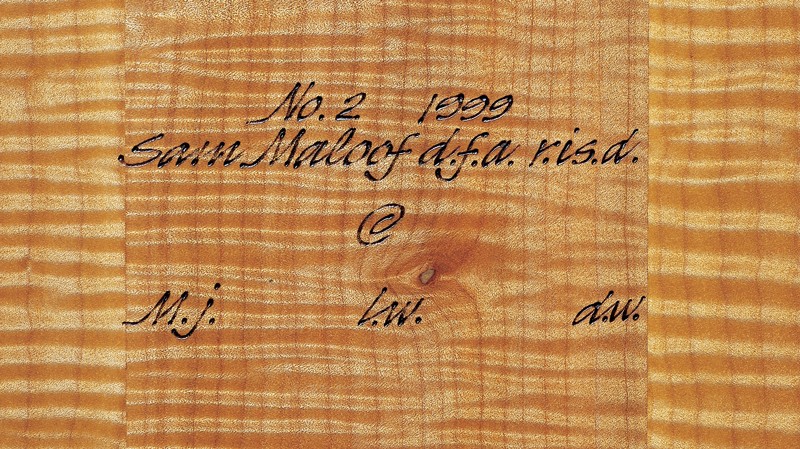 No. 2 1999
Sam Maloof d.f.a. r.i.s.d.
©
M.j. l.w. d.w.